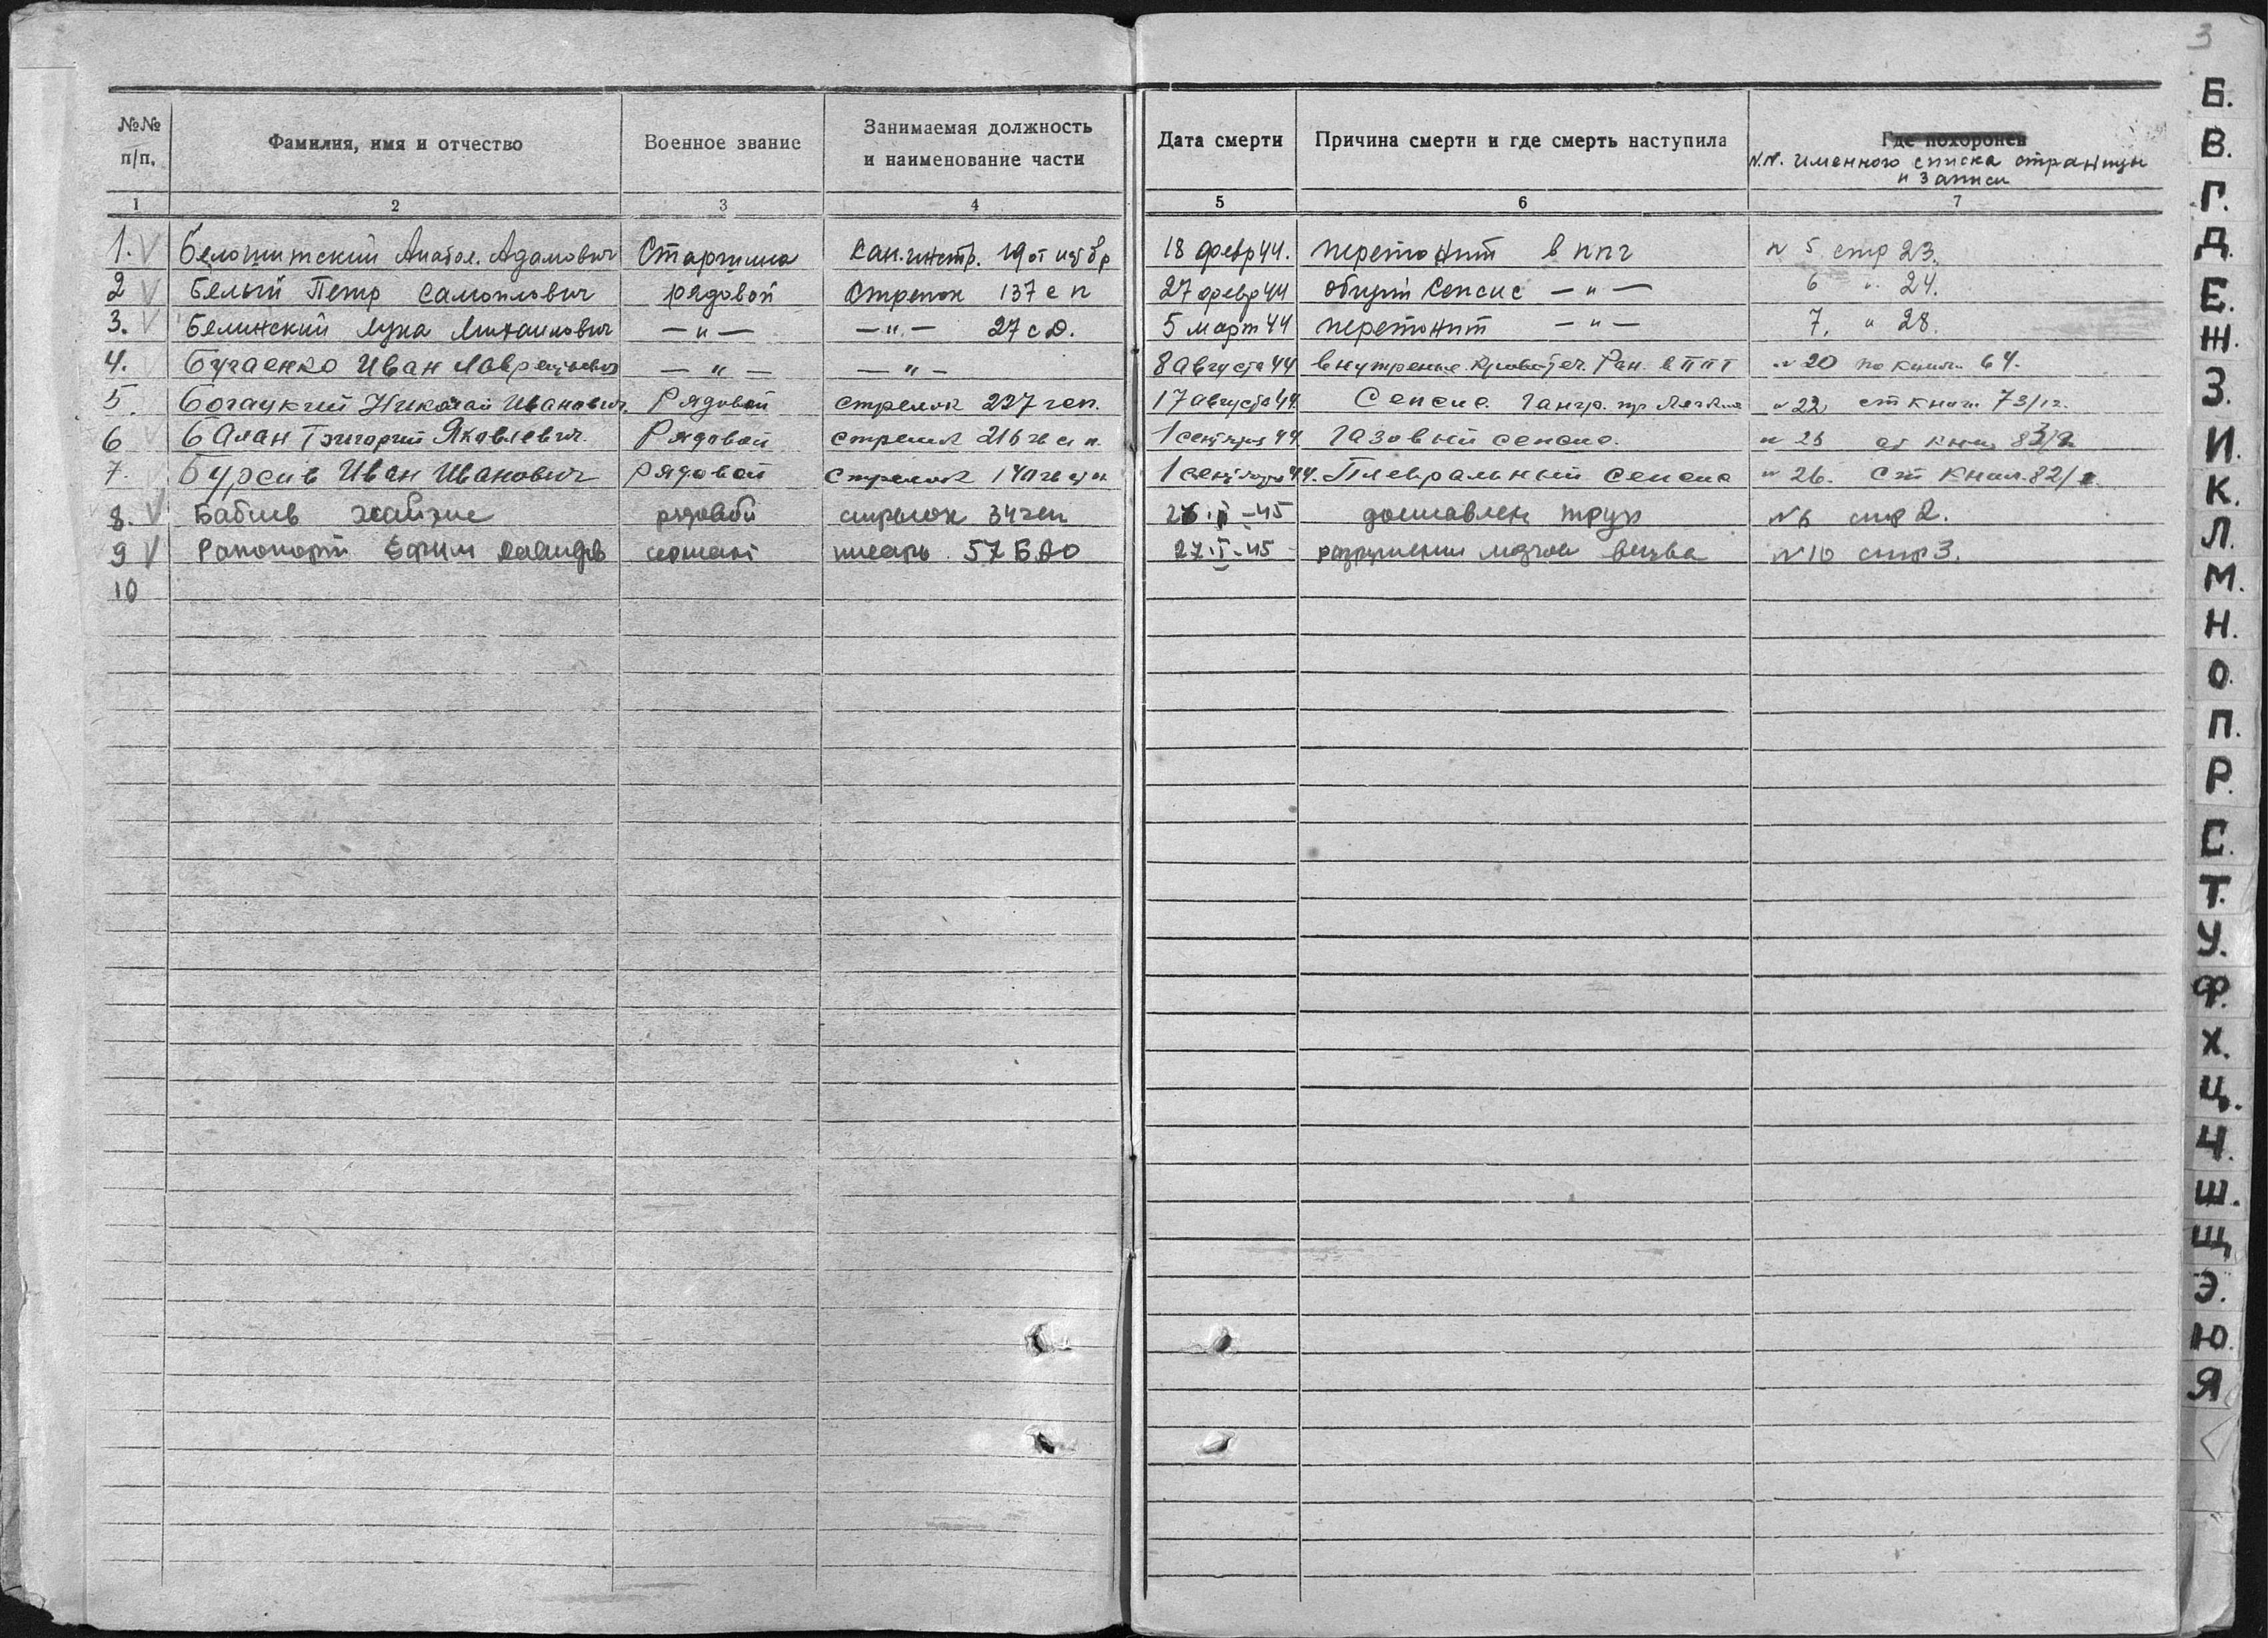 3
№№ п/п.
Фамилия, имя и отчество
Военное звание
Занимаемая должность и наименование части
Дата смерти
Причина смерти и где смерть наступила
Где похоронен
N.N. именного списка страницы и записи
1 2 3 4 5 6 7
1. V Белошитский Анатол. Адамович Старшина Сан.инстр. 19 от 18 февр 44. перетонит в ппг N 5 стр 23.
2 V Белый Петр Самойлович рядовой Стрелок 137 с п 27 февр 44 общий Сепсис — " — 6 " 24.
3. V Белинский Лука Михайлович — " — — " — 27 с д. 5 март 44 перетонит — " — 7. " 28.
4. Бугаенко Иван Лаврентьевич — " — — " — 8 августа 44 внутренне. Кровотеч. Ран. в ППГ " 20 по книги 64.
5. Богацкий Николай Иванович Рядовой стрелок 227 гсп. 17 августа 44 Сепсис. Гангр. " 22 ст книги 73/12.
6 Балан Григорий Яковлевич. Рядовой стрелок 216 1 сентября 44 Газовый сепсис. " 25 ст книг 83/2
7. Бурсив Иван Иванович рядовой стрелок 1 сентября 44. Плевральный сепсис " 26. ст книг. 82/1.
8. V Бабиев рядовой стрелок 34 гсп 45 доставлен труп N 6 стр 2.
9 V Рапопорт Ефим Давидов сержант писарь 57 БАО 27.I-45 разрушении мозгов N 10 стр 3.
10
Б.
В.
Г.
Д.
Е.
Ж.
З.
И.
К.
Л.
М.
Н.
О.
П.
Р.
С.
Т.
У.
Ф.
Х.
Ц.
Ч.
Ш.
Щ
Э.
Ю.
Я